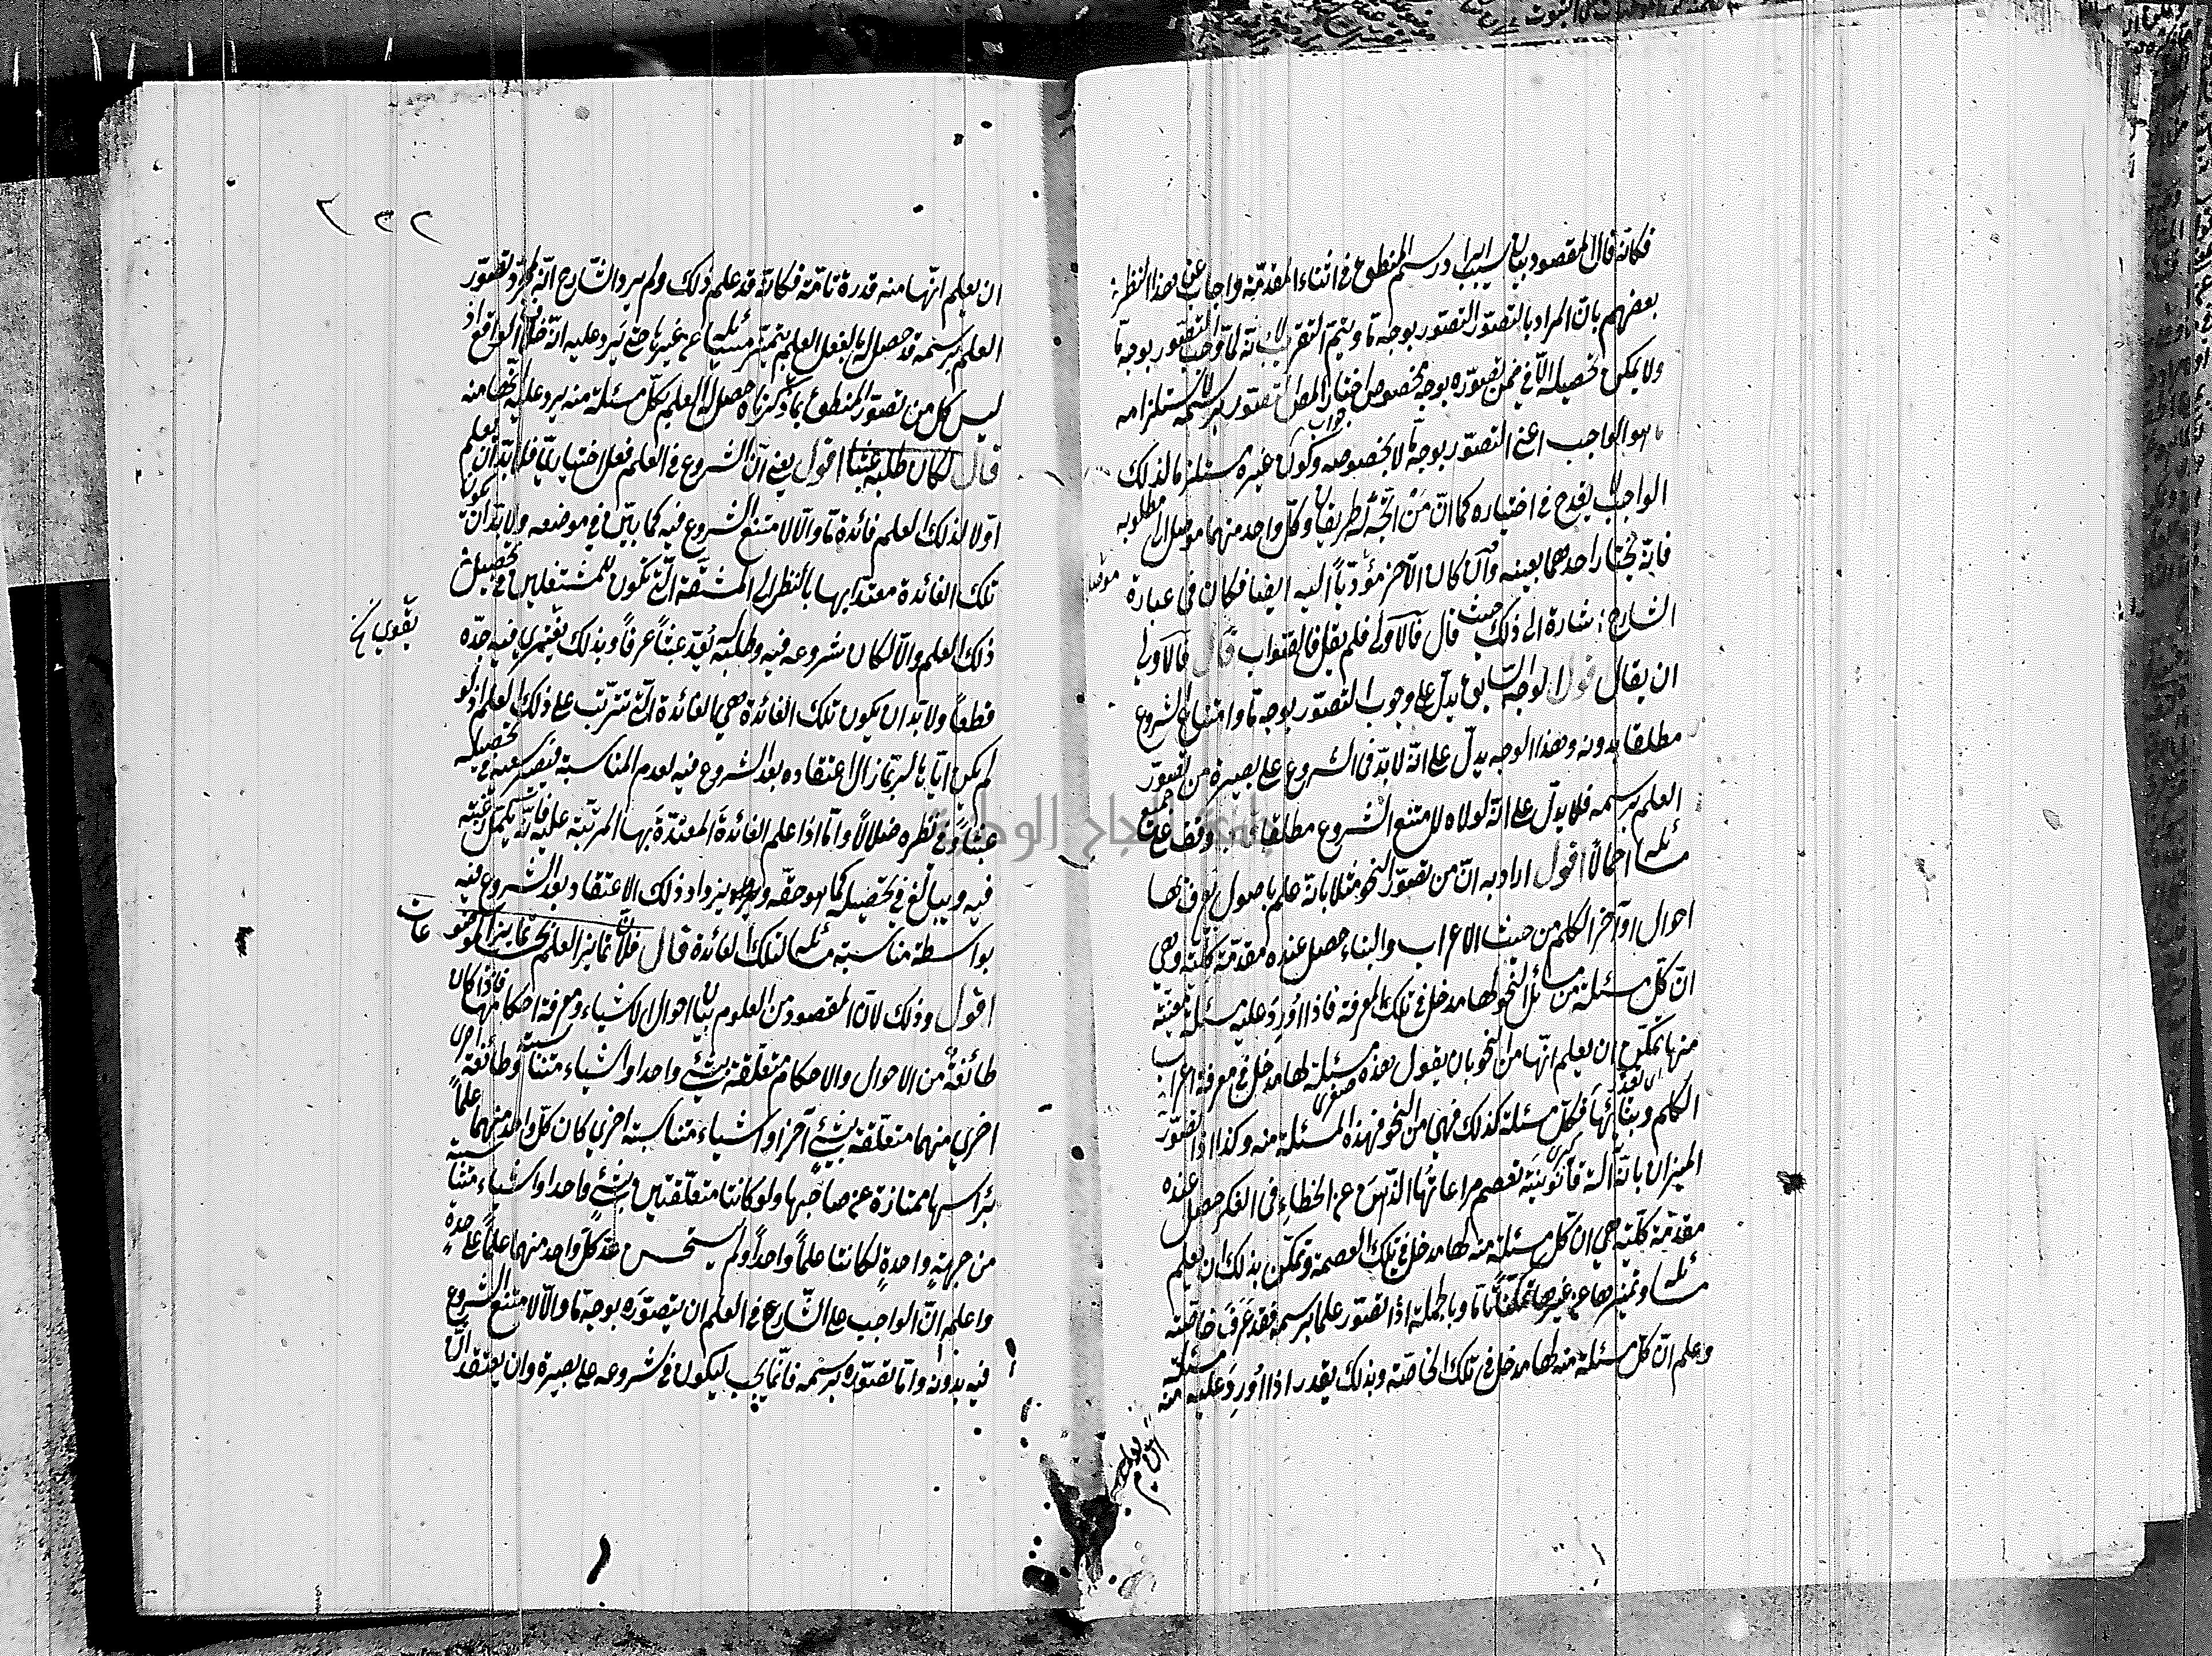 فكانه قال المقصود بيان سبب ايراد رسم المنطق في اثناء المقدمة واجاب عن هذا النظر
بعضهم بان المراد بالتصور التصور بوجه ما ويتم التقريب لانه لما وجب التصور بوجه ما
ولا يمكن تحصيله الا في ضمن تصوره بوجه مخصوص اختار المصل تصور برسمه لاستلزامه
ما هو الواجب اعني التصور بوجه ما لا بخصوصه وكون غيره مستلزما لذلك
جواب
الواجب لا يقدح في اختياره كما ان من اتجه له طريقان وكل واحد منهما موصل الى مطلوبه
فانه يختار احدهما بعينه وان كان الآخر مؤديا اليه ايضا فكان في عبارة
موصلا
الشارح اشارة الى ذلك حيث قال فالاولى فلم يقل فالصواب قال فالاولى
ان يقال اقول الوجه السابق يدل على وجوب التصور بوجه ما وامتناع الشروع
مطلقا بدونه وهذا الوجه يدل على انه لا بد في الشروع على بصيرة من تصور
العلم برسمه فلا يدل على انه لولاه لامتنع الشروع مطلقا قال وقف على جميع
مسائله اجمالا اقول اراد به ان من تصور النحو مثلا بانه علم باصول يعرف بها
احوال اواخر الكلم من حيث الاعراب والبناء حصل عنده مقدمة كلية وهي
ان كل مسئلة من مسائل النحو لها مدخل في تلك المعرفة فاذا اورد عليه مسئلة معينة
منها تمكن من ان يعلم انها من النحو بان يقول هذه مسئلة لها مدخل في معرفة اعراب
صغرى
الكلم وبنائها فكل مسئلة كذلك فهي من النحو فهذه المسئلة منه وكذا اذا تصور
كبرى
الميزان بانه آلة قانونية تعصم مراعاتها الذهن عن الخطاء في الفكر حصل عنده
مقدمة كلية هي ان كل مسئلة منه لها مدخل في تلك العصمة وتمكن بذلك ان يعلم
مسائله وتميزها عن غيرها تمكنا تاما وبالجملة اذا تصور علما برسمه فقد عرف خاصته
وعلم ان كل مسئلة منه لها مدخل في تلك الخاصة وبذلك يقدر اذا اورد عليه مسئلة منه
ان يعلم
ان يعلم انها منه قدرة تامة فكانه قد علم ذلك ولم يرد الشارح انه بمجرد تصور
العلم برسمه قد حصل له بالفعل العلم بتميز مسائله عن غيرها حتى يرد عليه انه خلاف الواقع اذ
ليس كل من تصور المنطق بما ذكرناه حصل له العلم بكل مسئلة منه يرد عليه انها منه
قال لكان طلبه عبثا اقول يعني ان الشروع في العلم فعل اختياري فلا بد ان يعلم
اولا لذلك العلم فائدة ما والا لامتنع الشروع فيه كما بين في موضعه ولا بد ان تكون
تلك الفائدة معتدا بها بالنظر الى المشقة التي تكون للمشتغلين في تحصيل
ذلك العلم والا لكان شروعه فيه وطلبه يعد عبثا عرفا وبذلك يفترى فيه جده
يقوى خ
قطعا ولا بد ان يكون تلك الفائدة هي الفائدة التي تترتب على ذلك العلم اذ لو
لم يكن اياها لربما زال اعتقاده بعد الشروع فيه لعدم المناسبة فيصير سعيه في تحصيله
عبثا في نظره ضلالا واما اذا علم الفائدة المعتدة بها المرتبة عليه فانه يكمل رغبته
فيه ويبالغ في تحصيله كما هو حقه ويزداد ذلك الاعتقاد بعد الشروع فيه
بواسطة مناسبة مسائله لتلك الفائدة قال فلان تمايز العلم بحسب تمايز الموضو
عات
اقول وذلك لان المقصود من العلوم بيان احوال الاشياء ومعرفة احكامها فاذا كان
طائفة من الاحوال والاحكام متعلقة بشئ واحد او اشياء متناسبة وطائفة اخرى
اخرى منهما متعلقة بشئ آخر او اشياء متناسبة اخرى كان كل واحد منهما علما
برأسها ممتازة عن صاحبها ولو كانتا متعلقتين بشئ واحد او اشياء متناسبة
من جهة واحدة لكانتا علما واحدا ولم يستحسن عد كل واحد منهما علما على حدة
واعلم ان الواجب على الشارع في العلم ان يتصوره بوجه ما والا لامتنع الشروع
فيه بدونه واما تصوره برسمه فانما يجب ليكون في شروعه على بصيرة وان يعتقد ان
جامعة النجاح الوطنية